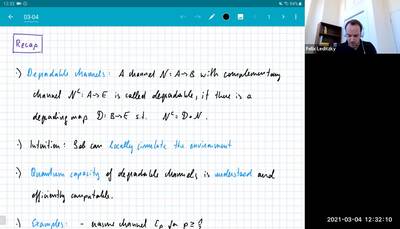 12:32
03-04
Recap
Felix Leditzky
·) Degradable channels: A channel N: A→B with complementary
channel Nᶜ: A→E is called degradable, if there is a
degrading map D: B→E s.t. Nᶜ = D∘N.
·) Intuition: Bob can locally simulate the environment
·) Quantum capacity of degradable channels is understood and
efficiently computable.
·) Examples: - erasure channel
2021-03-04 12:32:10